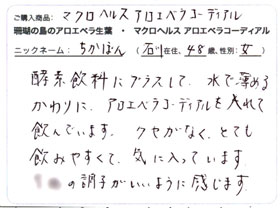 ご購入商品：マクロヘルス アロエベラコーディアル
珊瑚の島のアロエベラ生葉 ・ マクロヘルス アロエベラコーディアル
ニックネーム：ちかぽん（石川在住、48歳、性別：女）
酵素飲料にプラスして、水で薄める
かわりに、アロエベラコーディアルを入れて
飲んでいます。クセがなく、とても
飲みやすくて、気に入っています。
の調子がいいように感じます。